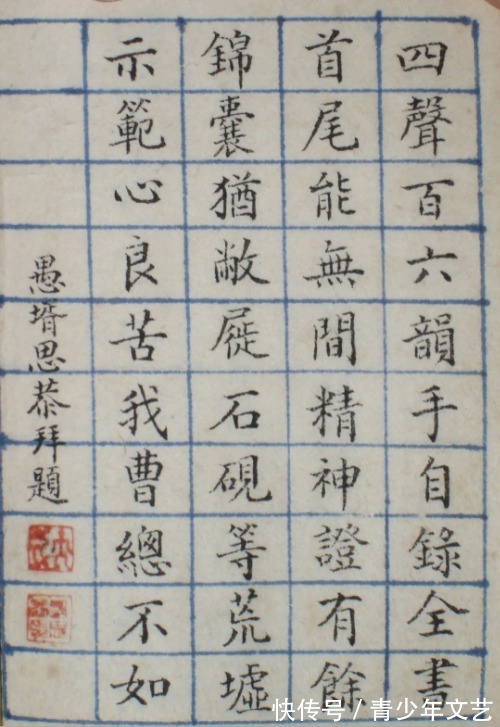 四聲百六韻手自錄全書
首尾能無間精神證有餘
錦囊猶敝屣石硯等荒墟
示範心良苦我曹總不如
愚壻思恭拜題
快传号/青少年文艺